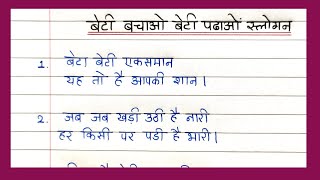 बेटी बचाओ बेटी पढाओं स्लोगन
1. बेटा बेटी एकसमान
यह तो है आपकी शान।
2. जब जब खड़ी उठी है नारी
हर किसी पर पडी है भारी।